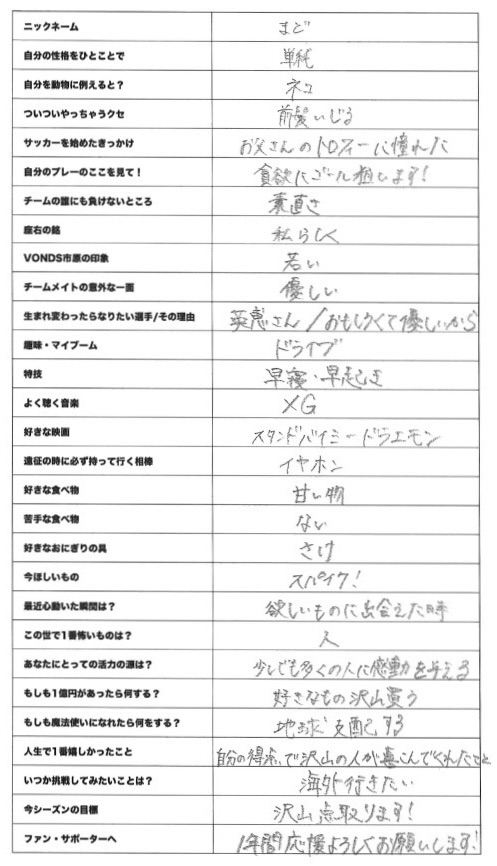 ニックネーム まど
自分の性格をひとことで 単純
自分を動物に例えると？ ネコ
ついついやっちゃうクセ 前髪いじる
サッカーを始めたきっかけ お父さんのトロフィーに憧れた
自分のプレーのここを見て！ 貪欲にゴール狙います!
チームの誰にも負けないところ 素直さ
座右の銘 私らしく
VONDS市原の印象 若い
チームメイトの意外な一面 優しい
生まれ変わったらなりたい選手/その理由 英恵さん/おもしろくて優しいから
趣味・マイブーム ドライブ
特技 早寝・早起き
よく聴く音楽 XG
好きな映画 スタンドバイミードラエモン
遠征の時に必ず持って行く相棒 イヤホン
好きな食べ物 甘い物
苦手な食べ物 ない
好きなおにぎりの具 さけ
今ほしいもの スパイク!
最近心動いた瞬間は？ 欲しいものに出会えた時
この世で1番怖いものは？ 人
あなたにとっての活力の源は？ 少しでも多くの人に感動を与える
もしも1億円があったら何する？ 好きなもの沢山買う
もしも魔法使いになれたら何をする？ 地球支配する
人生で1番嬉しかったこと 自分の得点で沢山の人が喜こんでくれたこと
いつか挑戦してみたいことは？ 海外行きたい
今シーズンの目標 沢山点取ります!
ファン・サポーターへ 1年間応援よろしくお願いします!